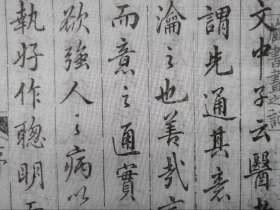 文中子云醫
謂先通其意
瀹之也善哉
而意之通實
欲強人之病以
執好作聰明